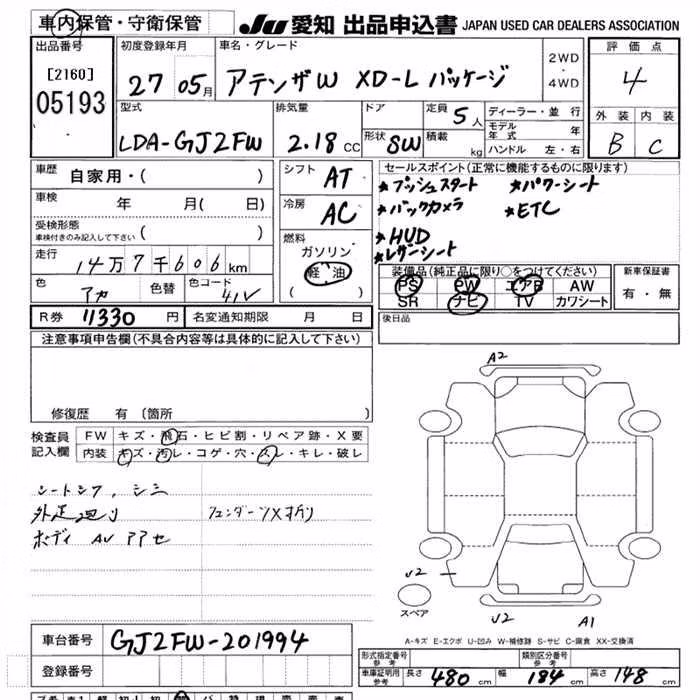 車内保管・守衛保管
JU 愛知 出品申込書 JAPAN USED CAR DEALERS ASSOCIATION
出品番号
[2160]
05193
初度登録年月
27 05月
車名・グレード
アテンザW XD-L パッケージ
2WD
・
4WD
評価点
4
外装 内装
B C
型式
LDA-GJ2FW
排気量
2.18 CC
ドア
形状 SW
定員 5人
積載 kg
ディーラー・並行
モデル年式 年
ハンドル 左・右
車歴
自家用・( )
車検 年 月( 日)
受検形態
車検付きのみ記入して下さい ( )
走行
14万7千606km
色 アカ 色替 色コード 41V
シフト AT
冷房 AC
燃料
ガソリン
軽油
( )
セールスポイント(正常に機能するものに限ります)
★プッシュスタート ★パワーシート
★バックカメラ ★ETC
★HUD
★レザーシート
装備品(純正品に限り○をつけてください)
PS PW エアB AW
SR ナビ TV カワシート
新車保証書
有・無
R券 11330円 名変通知期限 月 日
後日品
注意事項申告欄(不具合内容等は具体的に記入して下さい)
修復歴 有 〔箇所
検査員記入欄
FW キズ・飛石・ヒビ割・リペア跡・X要
内装 キズ・汚レ・コゲ・穴・スレ・キレ・破レ
シートシワ、シミ
外足廻り
ボディ AU アアセ
A2
U2
U2 A1
スペア
A-キズ E-エクボ U-凹み W-補修跡 S-サビ C-腐食 XX-交換済
車台番号 GJ2FW-201994
登録番号
形式指定番号 参考
類別区分番号 参考
車庫証明用 参考 長さ 480 幅 184 高さ 148